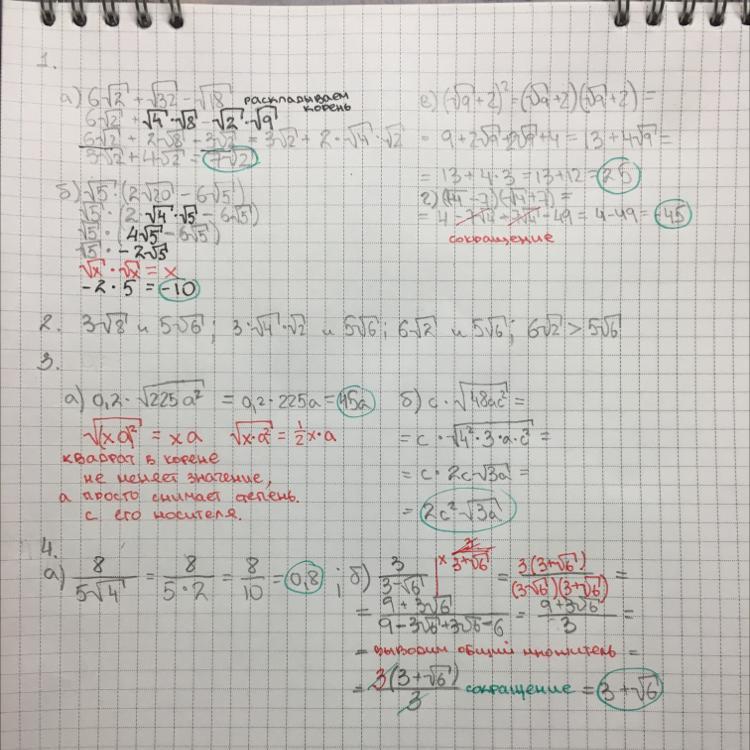 1.
а) 6√2 + √32 - √18 раскладываем
корень
6√2 + √4·√8 - √2·√9
6√2 + 2√8 - 3√2 = 3√2 + 2·√4·√2
3√2 + 4√2 = 7√2
б) √5·(2√20 - 6√5)
√5·(2·√4·√5 - 6√5)
√5·(4√5 - 6√5)
√5·-2√5
√x·√x = x
-2·5 = -10
в) (√9+2)² = (√9+2)(√9+2) =
= 9+2√9+2√9+4 = 13+4√9 =
= 13+4·3 = 13+12 = 25
г) (√4-7)(√4+7) =
= 4-7√4+7√4-49 = 4-49 = -45
сокращение
2. 3√8 и 5√6; 3·√4·√2 и 5√6; 6√2 и 5√6; 6√2 > 5√6
3.
а) 0,2·√225a² = 0,2·225a = 45a
√(xa)² = xa √x·a² = ½x·a
квадрат в корене
не меняет значение,
а просто снимает степень.
с его носителя.
б) c·√48ac² =
= c·√4²·3·a·c² =
= c·2c√3a =
2c²√3a
4.
а) 8/5√4 = 8/5·2 = 8/10 = 0,8 ;
б) 3/3-√6 | × 3/3+√6 = 3(3+√6)/(3-√6)(3+√6) =
= 9+3√6/9-3√6+3√6-6 = 9+3√6/3 =
= выводим общий множитель =
= 3(3+√6)/3 сокращение = 3+√6